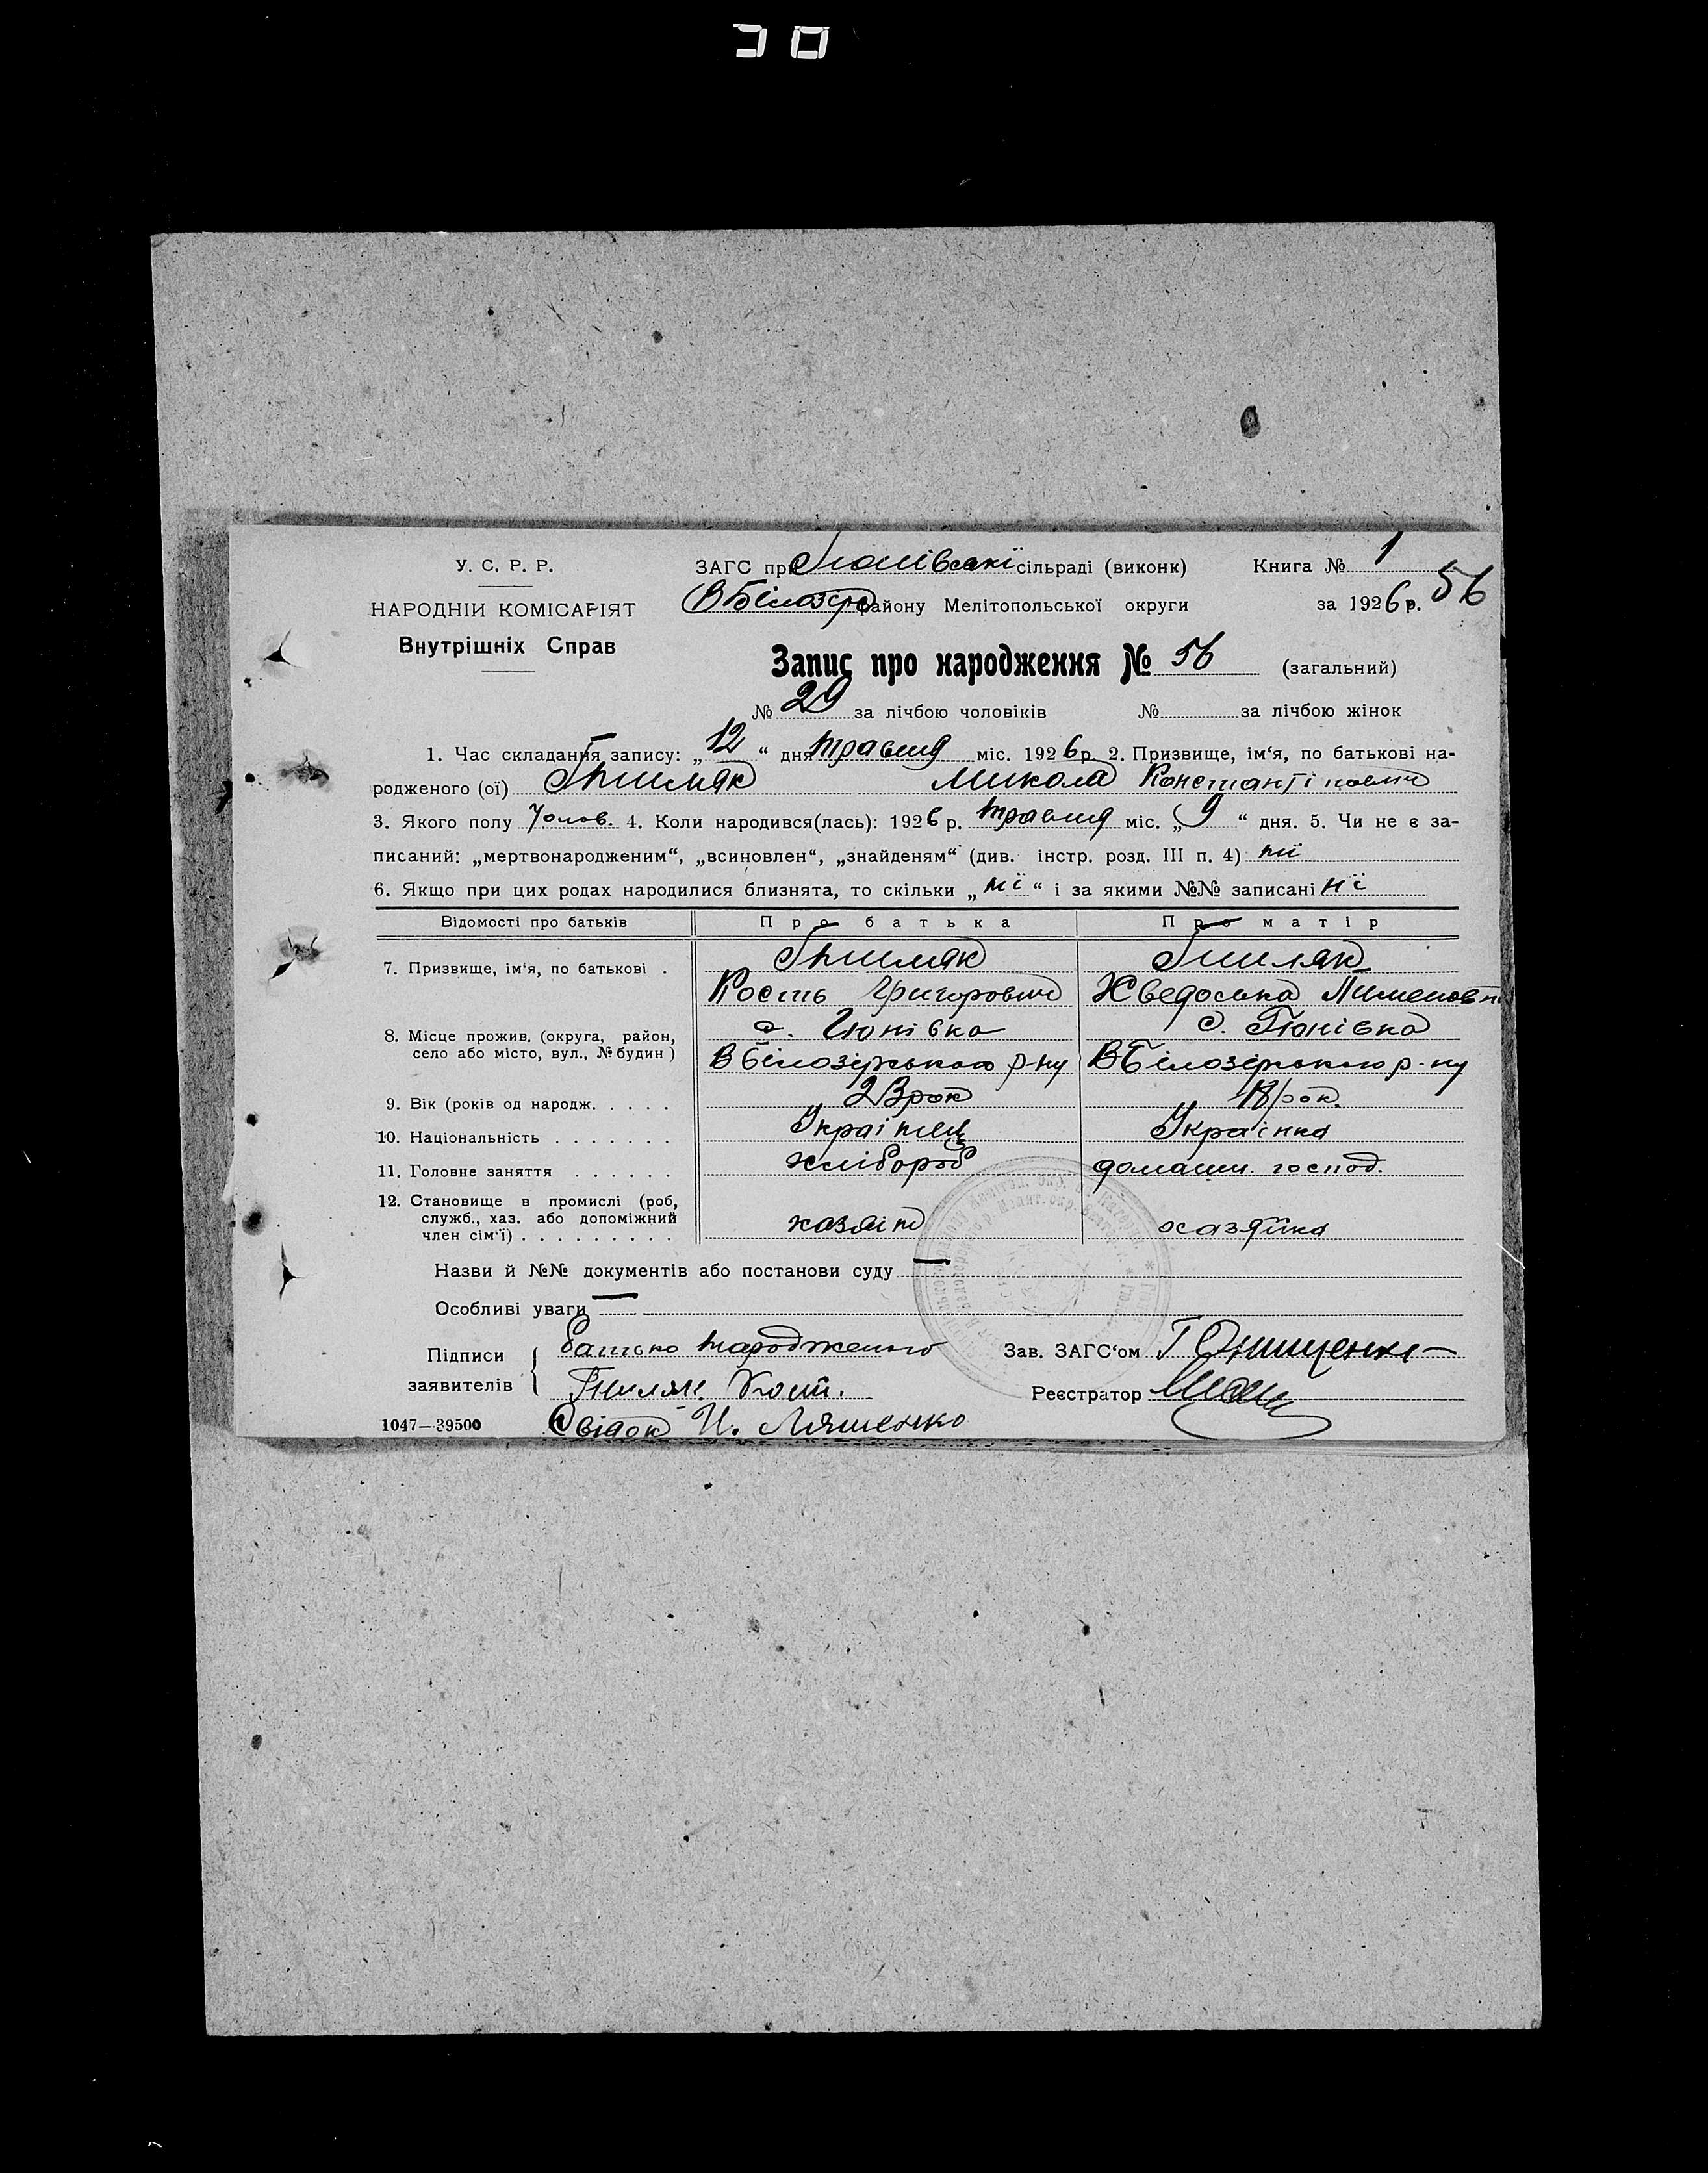 У. С. Р. Р.
НАРОДНІЙ КОМІСАРІЯТ
Внутрішніх Справ
ЗАГС при сільраді (виконк) Книга № 1
В Білозір району Мелітопольської округи за 1926 р. 56
Запис про народження № 56 (загальний)
№ 29 за лічбою чоловіків № за лічбою жінок
1. Час складання запису: „12“ дня травня міс. 1926 р. 2. Призвище, ім‘я, по батькові на-
родженого (ої) Гниляк Микола Константінович
3. Якого полу Чолов. 4. Коли народився(лась): 1926 р. травня міс. „9“ дня. 5. Чи не є за-
писаний: „мертвонародженим“, „всиновлен“, „знайденям“ (див. інстр. розд. III п. 4) нї
6. Якщо при цих родах народилися близнята, то скільки „нї“ і за якими №№ записані нї
Відомості про батьків Про батька Про матір
7. Призвище, ім‘я, по батькові . Гниляк Гниляк
Кость Григорович Хведоська Пименовн
8. Місце прожив. (округа, район, село або місто, вул., № будин) с. Гюнівка с. Гюнівка
В Білозірського р-ну В Білозірського р-ну
9. Вік (років од народж. . . . . 23 рок 18 рок.
10. Національність . . . . . . . Українец Українка
11. Головне заняття . . . . . . хлібороб домашн. господ.
12. Становище в промислі (роб, служб., хаз. або допоміжний член сім‘ї) . . . . . . . . . хазяін хазяйка
Назви й №№ документів або постанови суду —
Особливі уваги —
Підписи заявителів { батько народженого
Гниляк Кост.
Свідок И. Ляшенко
Зав. ЗАГС‘ом Г Онищенко
Реєстратор
1047—39500